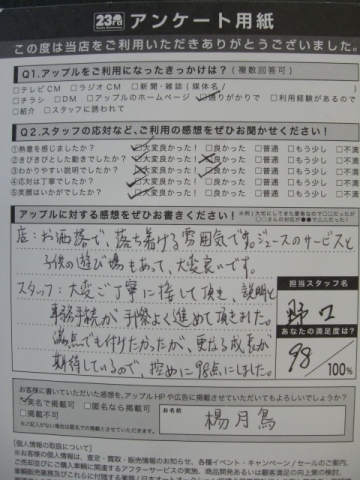 アンケート用紙
この度は当店をご利用いただきありがとうございました。
Q1.アップルをご利用になったきっかけは?(複数回答可)
□テレビCM □ラジオCM □新聞・雑誌(媒体名/ )
□チラシ □DM □アップルのホームページ ☑通りがかりで □利用経験があるので
□紹介 □スタッフに誘われて
Q2.スタッフの応対など、ご利用の感想をぜひお聞かせください!
①熱意を感じましたか? ☑大変良かった! □良かった □普通 □もう少し □不満
②きびきびとした動きでしたか? □大変良かった! ☑良かった □普通 □もう少し □不満
③わかりやすい説明でしたか? □大変良かった! ☑良かった □普通 □もう少し □不満
④応対は丁寧でしたか? ☑大変良かった! □良かった □普通 □もう少し □不満
⑤笑顔はいかがでしたか? ☑大変良かった! □良かった □普通 □もう少し □不満
アップルに対する感想をぜひお書きください!
店:お洒落で、落ち着ける雰囲気です。ジュースのサービスと
子供の遊び場もあって、大変良いです。
スタッフ:大変ご丁寧に接して頂き、説明と
事務手続が手際よく進めて頂きました。
満点でも付けたかったが、更なる成長が
期待しているので、控めに98点にしました。
担当スタッフ名
野口
あなたの満足度は?
98
100%
お客様に書いていただいた感想を、アップルHPや広告に掲載させていただいてもよろしいでしょうか?
☑実名で掲載可 □匿名なら掲載可
□掲載不可
※ご記入がない場合は匿名での掲載とさせていただきます。
お名前
楊月鳥
【個人情報の取扱について】
※お客様の個人情報は、査定・買取・販売情報のお知らせ、各種イベント・キャンペーン/セールのご案内、